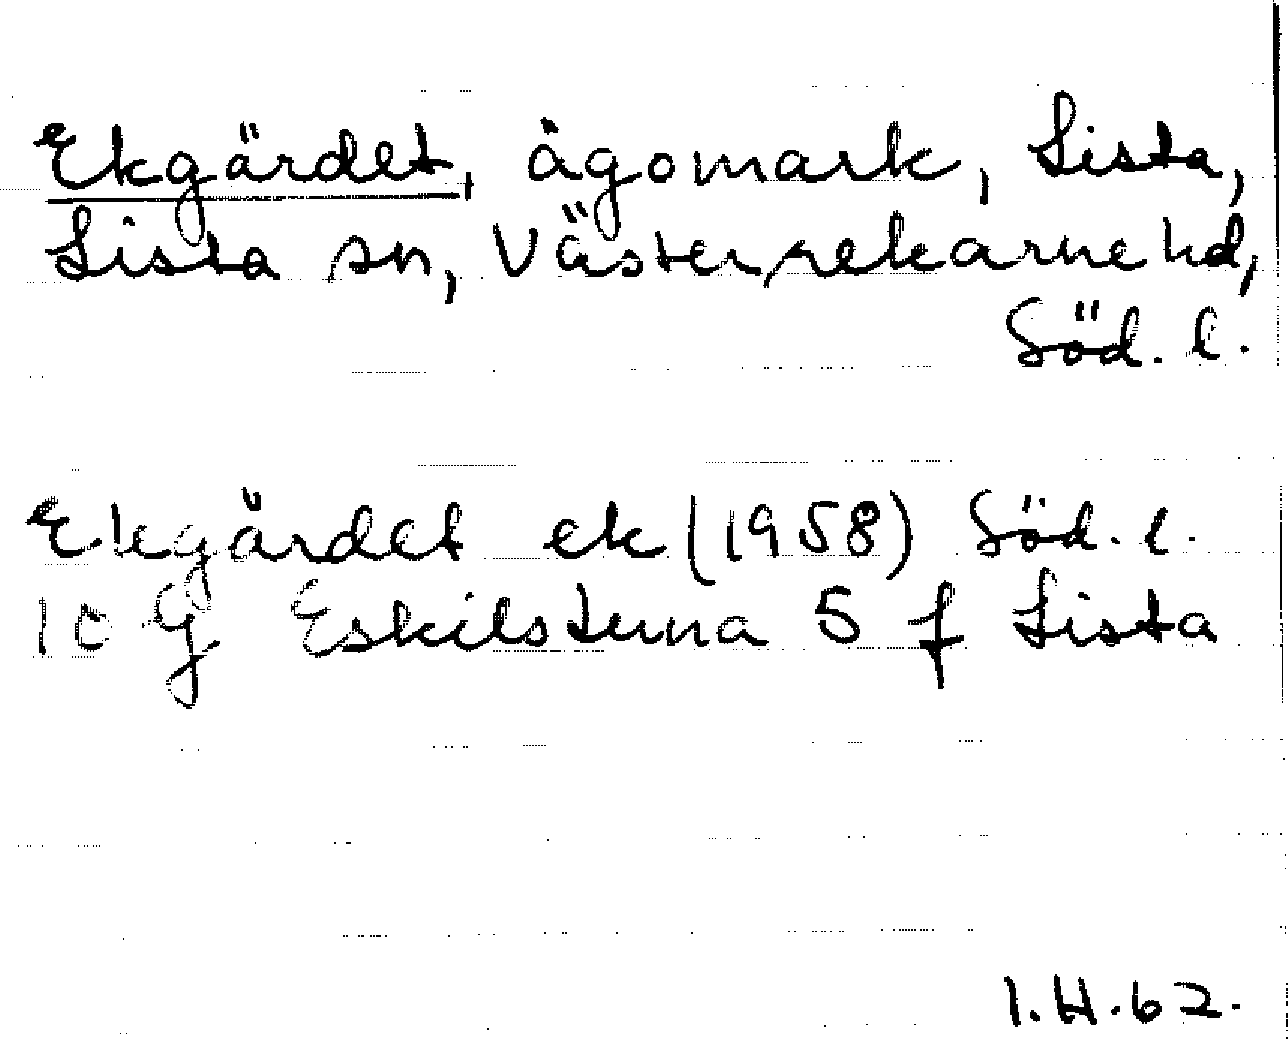 Ekgärdet, ägomark, Lista,
Lista sn, Västerrekarne hd,
Söd. l.
Ekgärdet ek (1958) Söd. l.
10 G Eskilstuna 5 f Lista
I.H.62.